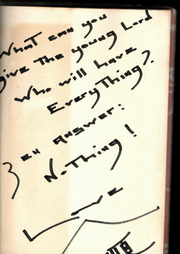 What can you
give the young Lord
Who will have
Everything?
Zen answer:
Nothing!
Love